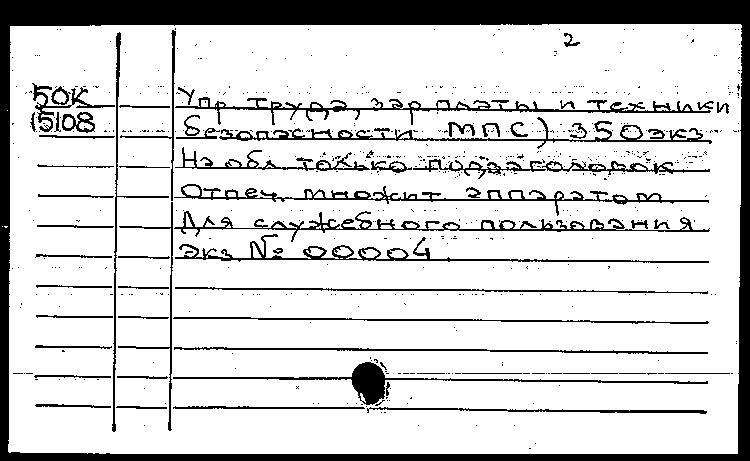 2
50К Упр. труда, зарплаты и техники
15108 безопасности МПС) 350экз.
На обл. только подзаголовок
Отпеч. множит. аппаратом.
Для служебного пользования
экз. № 00004.